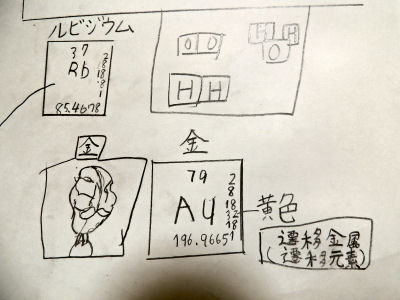 ルビジウム
37
Rb
2
8
18
8
1
85.4678
O O
H H
O
H H
金
金
79
Au
2
8
18
32
18
1
196.9665
黄色
遷移金属
(遷移元素)